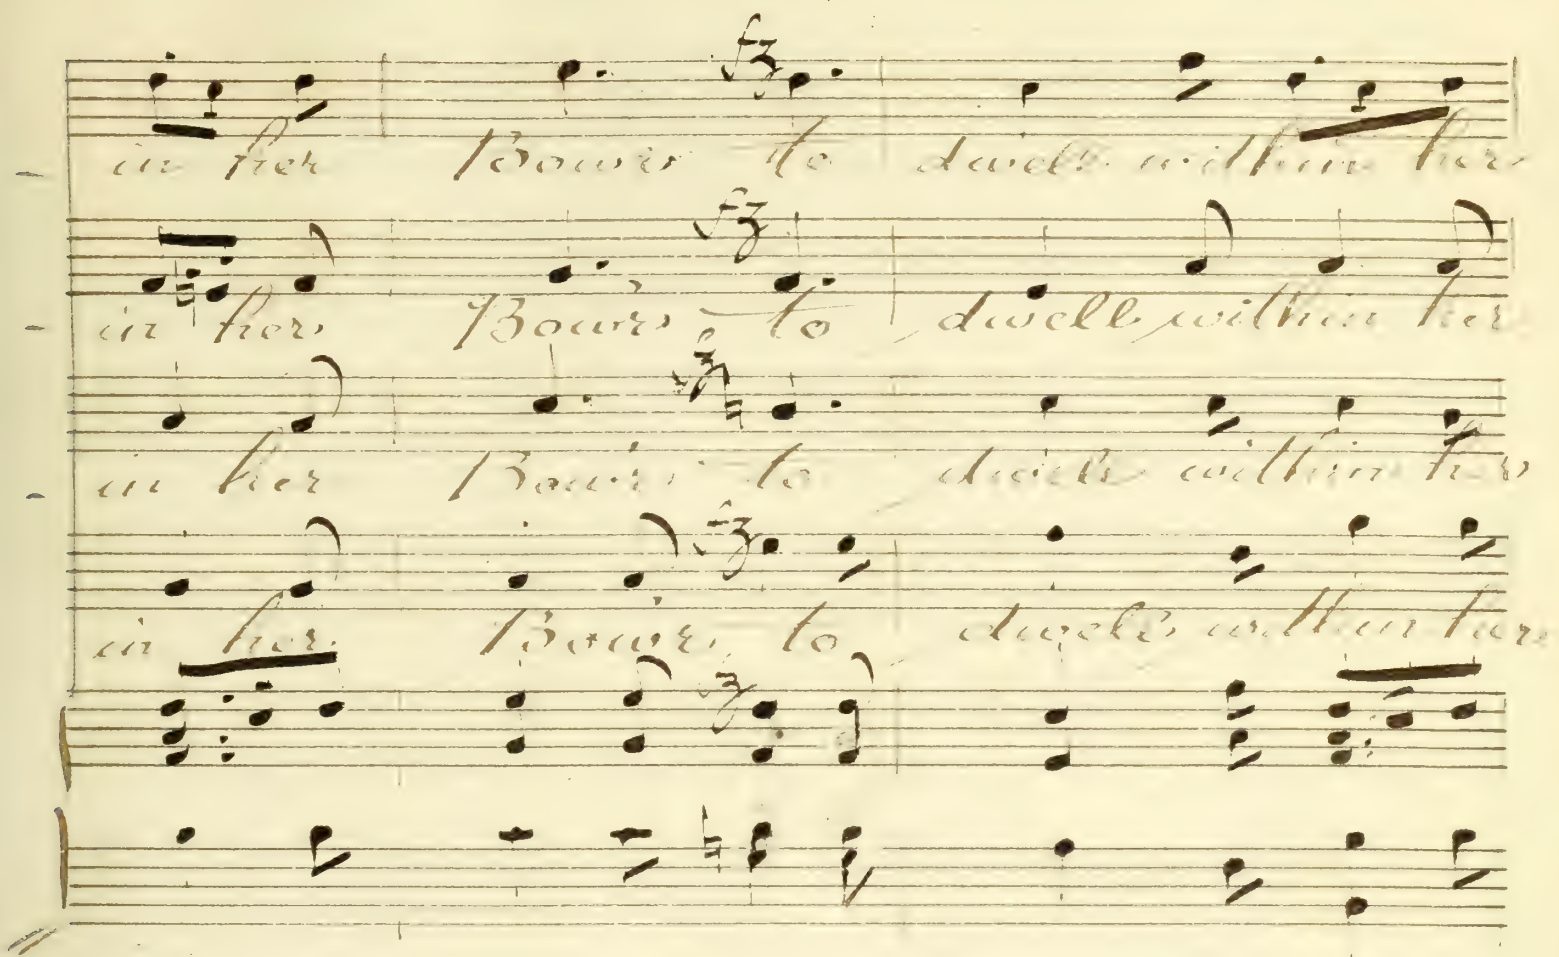 fz
in her Bowrs to dwell within her
fz
in her Bowrs to dwell within her
fz
in her Bowrs to dwell within her
fz
in her Bowrs to dwell within her
fz